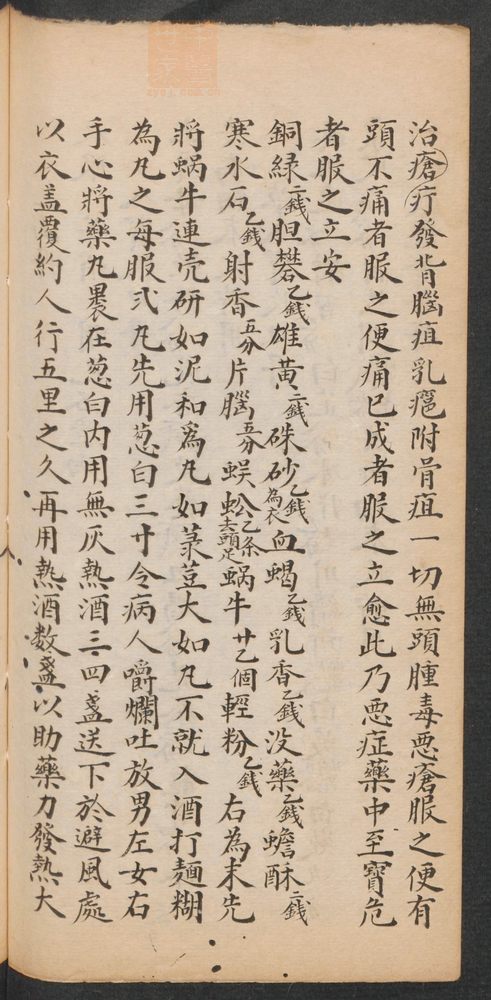 治瘡疔發背腦疽乳癰附骨疽一切無頭腫毒悪瘡服之便有
頭不痛者服之便痛已成者服之立愈此乃悪症藥中至寶危
者服之立安
銅緑二錢胆礬乙錢雄黄二錢硃砂乙錢為衣血蝎乙錢乳香乙錢没藥乙錢蟾酥二錢
寒水石乙錢射香五分片腦五分蜈蚣乙条去頭足蝸牛廿乙個輕粉乙錢右為末先
將蝸牛連壳研如泥和爲丸如菉荳大如丸不就入酒打麺糊
為丸之每服弍丸先用葱白三寸令病人嚼爛吐放男左女右
手心將藥丸褁在葱白内用無灰熱酒三四盞送下於避風處
以衣盖覆約人行五里之久再用熱酒数盞以助藥力發熱大